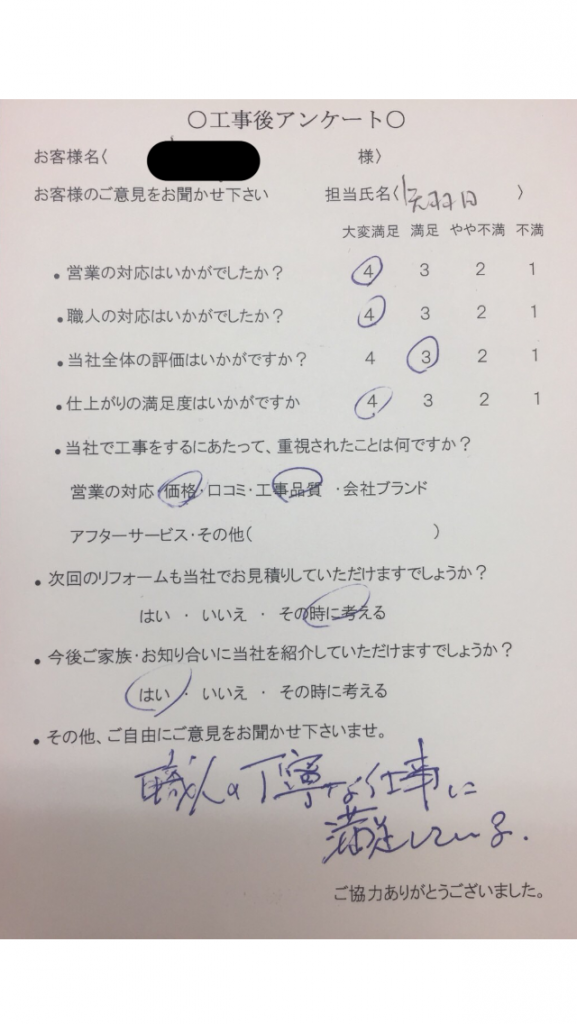 〇工事後アンケート〇
お客様名〈 様〉
お客様のご意見をお聞かせ下さい 担当氏名〈 〉
大変満足 満足 やや不満 不満
・営業の対応はいかがでしたか? 4 3 2 1
・職人の対応はいかがでしたか? 4 3 2 1
・当社全体の評価はいかがですか? 4 3 2 1
・仕上がりの満足度はいかがですか 4 3 2 1
・当社で工事をするにあたって、重視されたことは何ですか?
営業の対応・価格・口コミ・工事品質 ・会社ブランド
アフターサービス・その他( )
・次回のリフォームも当社でお見積りしていただけますでしょうか?
はい ・ いいえ ・ その時に考える
・今後ご家族・お知り合いに当社を紹介していただけますでしょうか?
はい ・ いいえ ・ その時に考える
・その他、ご自由にご意見をお聞かせ下さいませ。
職人の丁寧な仕事に
満足している.
ご協力ありがとうございました。